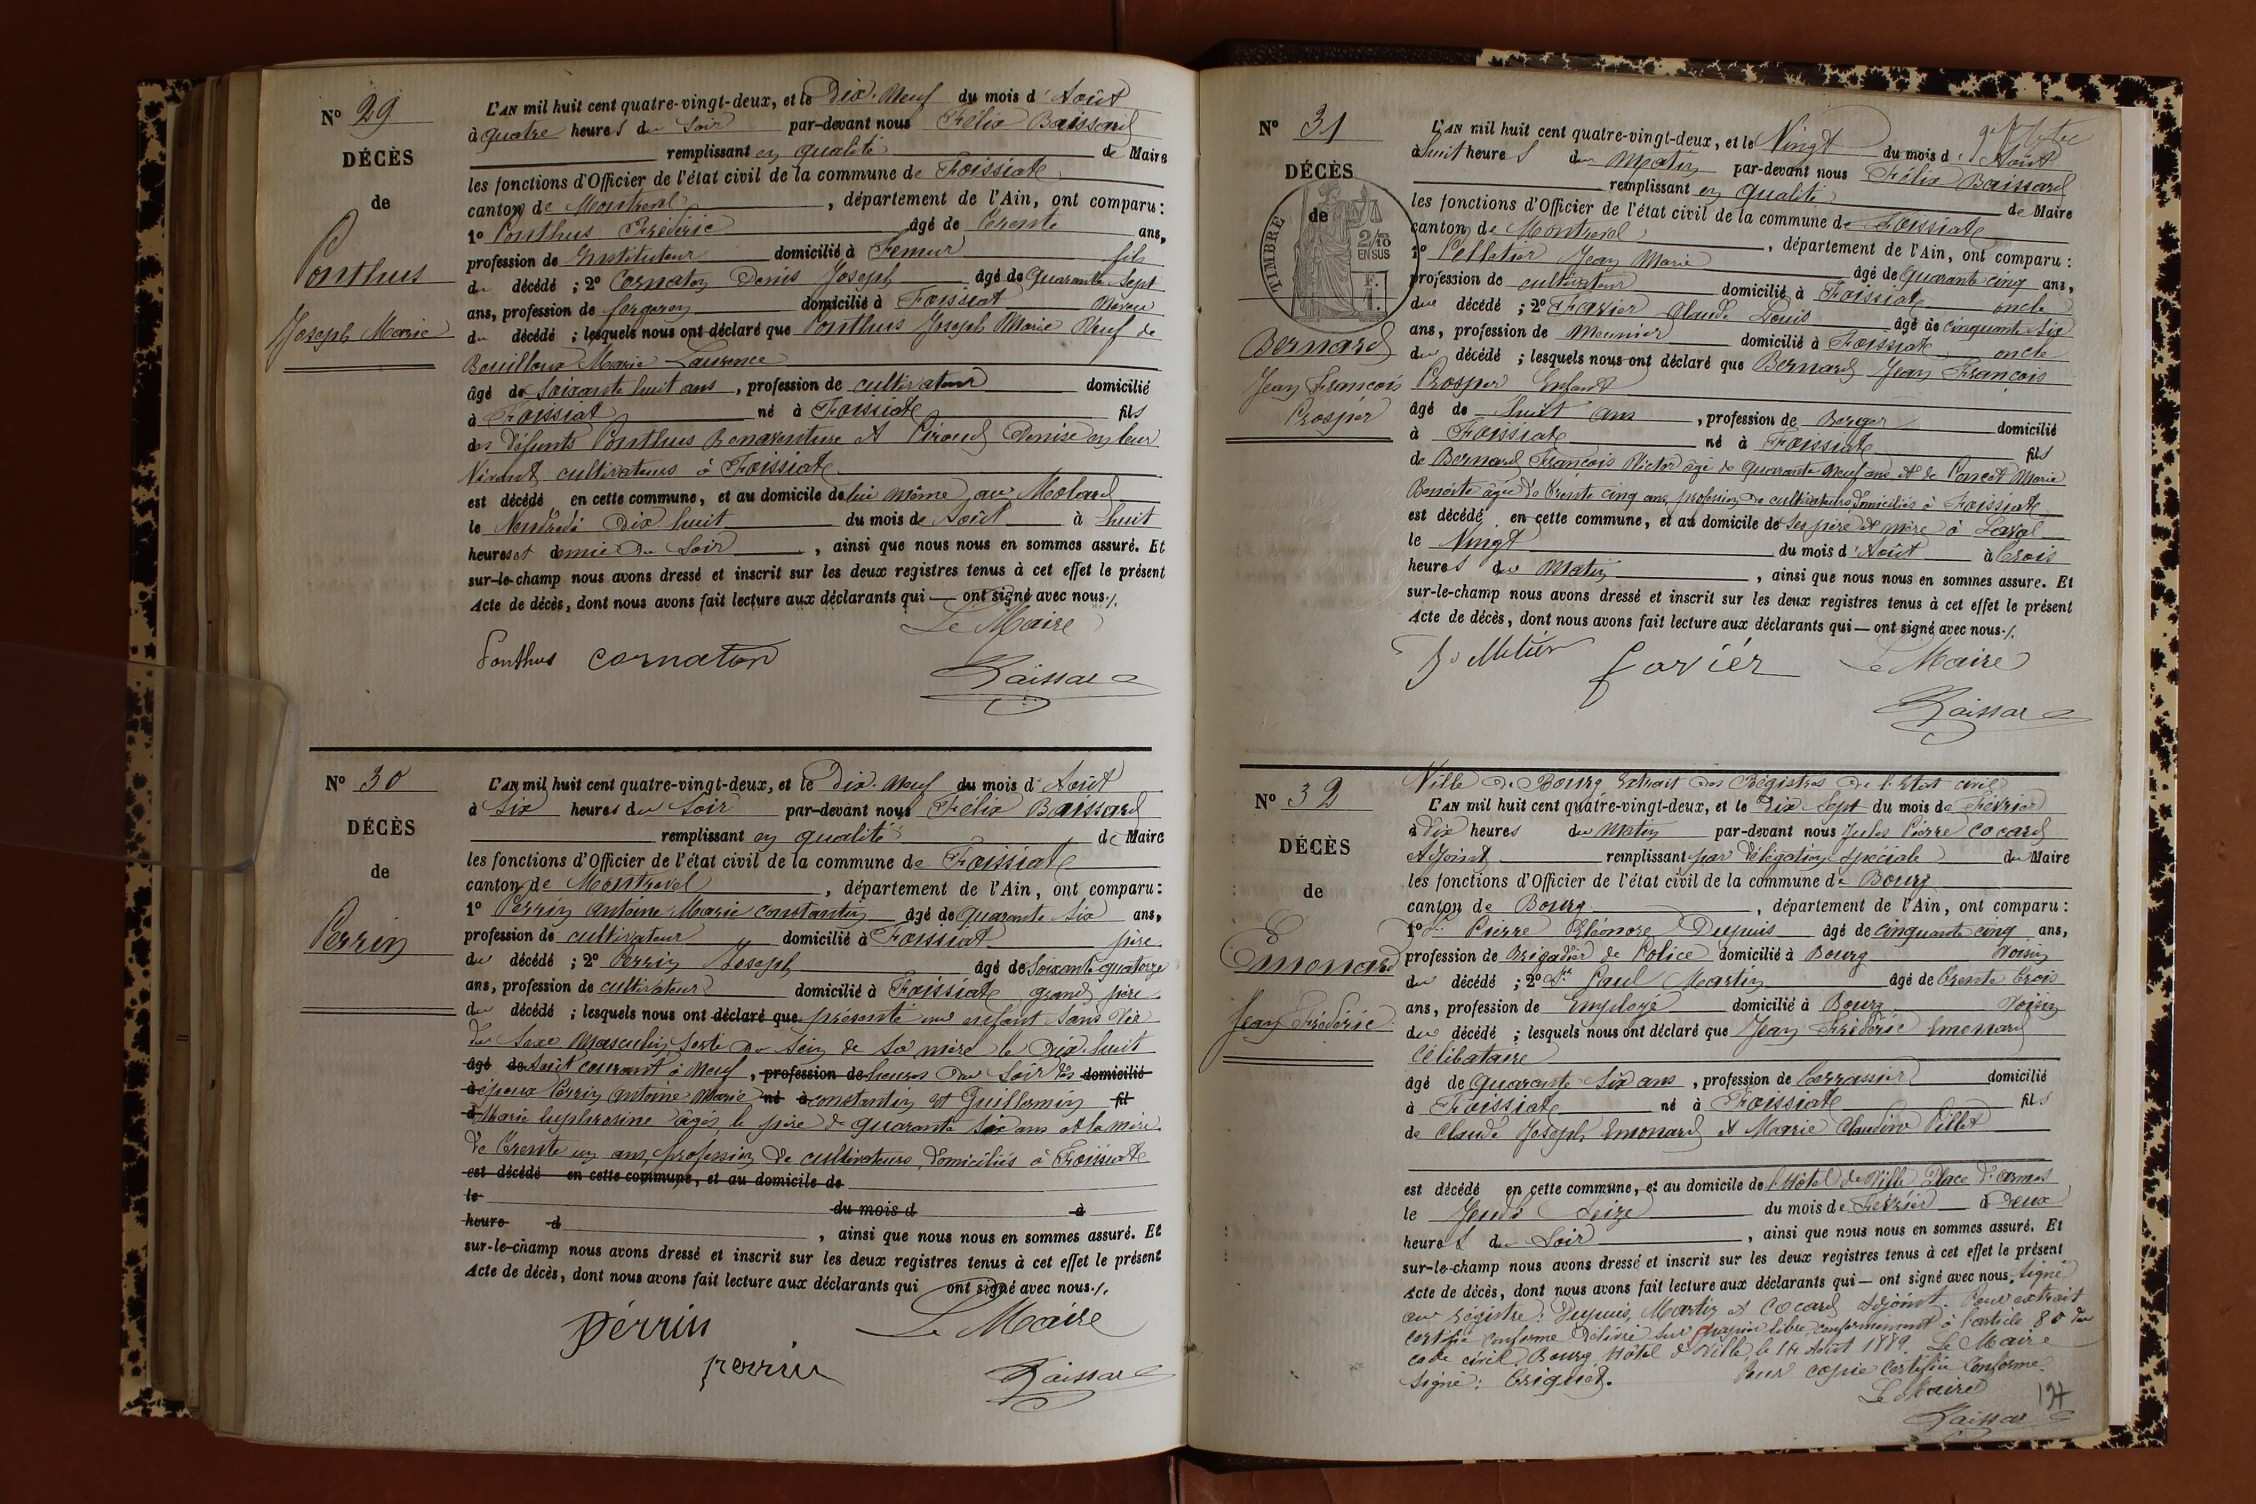 N° 29
DÉCÈS
de
Ponthus
Joseph Marie
L'AN mil huit cent quatre-vingt-deux, et le Dix-Neuf du mois d'Août
à quatre heures du Soir par-devant nous Félix Baissard
remplissant en qualité de Maire
les fonctions d'Officier de l'état civil de la commune de Foissiat
canton de Montrevel, département de l'Ain, ont comparu :
1° Ponthus Frédéric âgé de Trente ans,
profession de Instituteur domicilié à fils
du décédé ; 2° Cornaton Denis Joseph âgé de Quarante Sept
ans, profession de forgeron domicilié à Foissiat Neveu
du décédé ; lesquels nous ont déclaré que Ponthus Joseph Marie Veuf de
Bouilloux Marie Laurence
âgé de Soixante huit ans, profession de cultivateur domicilié
à Foissiat né à Foissiat fils
des défunts Ponthus Bonaventure et Piroud Denise en leur
Vivant cultivateurs à Foissiat
est décédé en cette commune, et au domicile de lui même au Molard
le Vendredi Dix huit du mois de Août à huit
heures et demie du Soir, ainsi que nous nous en sommes assuré. Et
sur-le-champ nous avons dressé et inscrit sur les deux registres tenus à cet effet le présent
Acte de décès, dont nous avons fait lecture aux déclarants qui — ont signé avec nous ./.
Le Maire
Ponthus cornaton
Baissard
N° 30
DÉCÈS
de
Perrin
L'AN mil huit cent quatre-vingt-deux, et le Dix-Neuf du mois d'Août
à Six heures du Soir par-devant nous Félix Baissard
remplissant en qualité de Maire
les fonctions d'Officier de l'état civil de la commune de Foissiat
canton de Montrevel, département de l'Ain, ont comparu :
1° Perrin Antoine Marie Constantin âgé de Quarante Six ans,
profession de cultivateur domicilié à Foissiat père
du décédé ; 2° Perrin Joseph âgé de Soixante quatorze
ans, profession de cultivateur domicilié à Foissiat grand père
du décédé ; lesquels nous ont déclaré que présenté un enfant Sans Vie
du Sexe Masculin Sorti du Sein de Sa mère le Dix-huit
âgé de Août courant à Neuf, profession de heures du Soir des domicilié
à époux Perrin Antoine Marie né à Constantin et Guillermin fil
d Marie Euphrosine âgés, le père de quarante Six ans et la mère
de Trente un ans, profession de cultivateurs, domiciliés à Foissiat
est décédé en cette commune, et au domicile de
le du mois d à
heure d, ainsi que nous nous en sommes assuré. Et
sur-le-champ nous avons dressé et inscrit sur les deux registres tenus à cet effet le présent
Acte de décès, dont nous avons fait lecture aux déclarants qui ont signé avec nous ./.
perrin Le Maire
perrin
Baissard
N° 31
DÉCÈS
de
TIMBRE
2/10
EN SUS
Bernard
Jean François
Prosper
L'AN mil huit cent quatre-vingt-deux, et le Vingt du mois d'Août
à huit heures du Matin par-devant nous Félix Baissard
remplissant en qualité de Maire
les fonctions d'Officier de l'état civil de la commune de Foissiat
canton de Montrevel, département de l'Ain, ont comparu :
1° Pelletier Jean Marie âgé de Quarante cinq ans,
profession de cultivateur domicilié à Foissiat oncle
du décédé ; 2° Favier Claude Louis âgé de cinquante Six
ans, profession de Meunier domicilié à Foissiat oncle
du décédé ; lesquels nous ont déclaré que Bernard Jean François
Prosper Enfant
âgé de huit ans, profession de Berger domicilié
à Foissiat né à Foissiat fils
de Bernard François Victor âgé de Quarante Neuf ans et de Poncet Marie
Benoite âgée de Trente cinq ans, profession de cultivateurs domiciliés à Foissiat
est décédé en cette commune, et au domicile de Ses père et mère à Laval
le Vingt du mois d'Août à trois
heures du Matin, ainsi que nous nous en sommes assuré. Et
sur-le-champ nous avons dressé et inscrit sur les deux registres tenus à cet effet le présent
Acte de décès, dont nous avons fait lecture aux déclarants qui — ont signé avec nous ./.
favier Le Maire
Baissard
N° 32
DÉCÈS
de
Emonard
Jean Frédéric
Ville de Bourg Extrait des Régistres de l'Etat civil
L'AN mil huit cent quatre-vingt-deux, et le Dix Sept du mois de Février
à Dix heures du Matin par-devant nous Jules Pierre Cocard
Adjoint remplissant par délégation spéciale du Maire
les fonctions d'Officier de l'état civil de la commune de Bourg
canton de Bourg, département de l'Ain, ont comparu :
1° Sr Pierre Eléonore Dupuis âgé de cinquante cinq ans,
profession de Brigadier de Police domicilié à Bourg Voisin
du décédé ; 2° Sr Paul Martin âgé de Trente trois
ans, profession de Employé domicilié à Bourg Voisin
du décédé ; lesquels nous ont déclaré que Jean Frédéric Emonard
Célibataire
âgé de Quarante Six ans, profession de Terrassier domicilié
à Foissiat né à Foissiat fils
de Claude Joseph Emonard et Marie Claudine Pillet
est décédé en cette commune, et au domicile de l'Hôtel de Ville Place d'armes
le Jeudi Seize du mois de Février à Deux
heures du Soir, ainsi que nous nous en sommes assuré. Et
sur-le-champ nous avons dressé et inscrit sur les deux registres tenus à cet effet le présent
Acte de décès, dont nous avons fait lecture aux déclarants qui — ont signé avec nous, signé
au régistre : Dupuis, Martin et Cocard Adjoint. Pour extrait
certifié conforme Délivré sur papier libre, conformément à l'article 80 du
code civil, Bourg, Hôtel de Ville, le 14 Août 1882. Le Maire
Signé : Briquet. Pour copie certifiée conforme.
Le Maire
Baissard